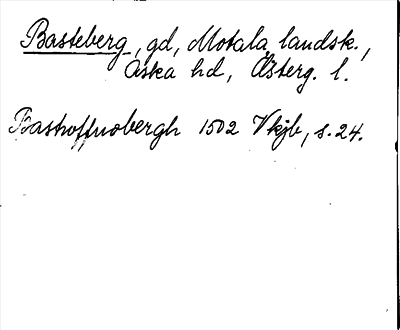 Basteberg, gd, Motala landsk.,
Aska hd, Österg. l.
Bashoffuobergh 1502 Vkjb, s. 24.